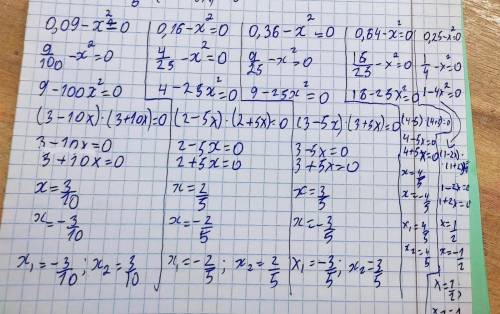 0,09-x²=0
9/100-x²=0
9-100x²=0
(3-10x)·(3+10x)=0
3-10x=0
3+10x=0
x=3/10
x=-3/10
x₁=-3/10; x₂=3/10
0,16-x²=0
4/25-x²=0
4-25x²=0
(2-5x)·(2+5x)=0
2-5x=0
2+5x=0
x=2/5
x=-2/5
x₁=-2/5; x₂=2/5
0,36-x²=0
9/25-x²=0
9-25x²=0
(3-5x)·(3+5x)=0
3-5x=0
3+5x=0
x=3/5
x=-3/5
x₁=-3/5; x₂=3/5
0,64-x²=0
16/25-x²=0
16-25x²=0
4-5x=0
4+5x=0
x=4/5
x=-4/5
0,25-x²=0
1/4-x²=0
1-4x²=0
(1-2x)·
(1+2x)=0
1-2x=0
1+2x=0
x=1/2
x=-1/2